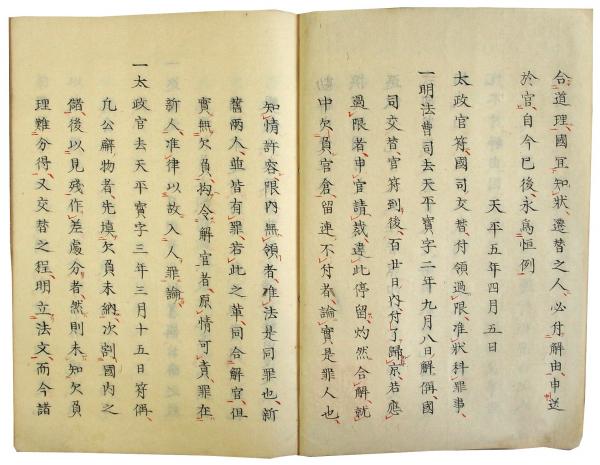 合道理國冝知狀遷替之人必付解由申送
於官自今已後永爲恒例
天平五年四月五日
太政官符國司交替付領過限准狀科罪事
一明法曹司去天平寳字二年九月八日解偁國
司交替官符到後百廿日內付了歸京若應
過限者申官請裁違此停留灼然合解就
中欠負官倉留連不付者論實是罪人也
知情許容限內無領者准法是同罪也新
舊兩人並皆有罪若此之輩同合解官但
實無欠負拘令解官者原情可責罪在
新人准律以故入人罪論
一太政官去天平寳字三年三月十五日符偁
凡公廨物者先塡欠負未納次割國內之
儲後以見殘作差處分者然則未知欠負
理難分得又交替之程明立法文而今諸